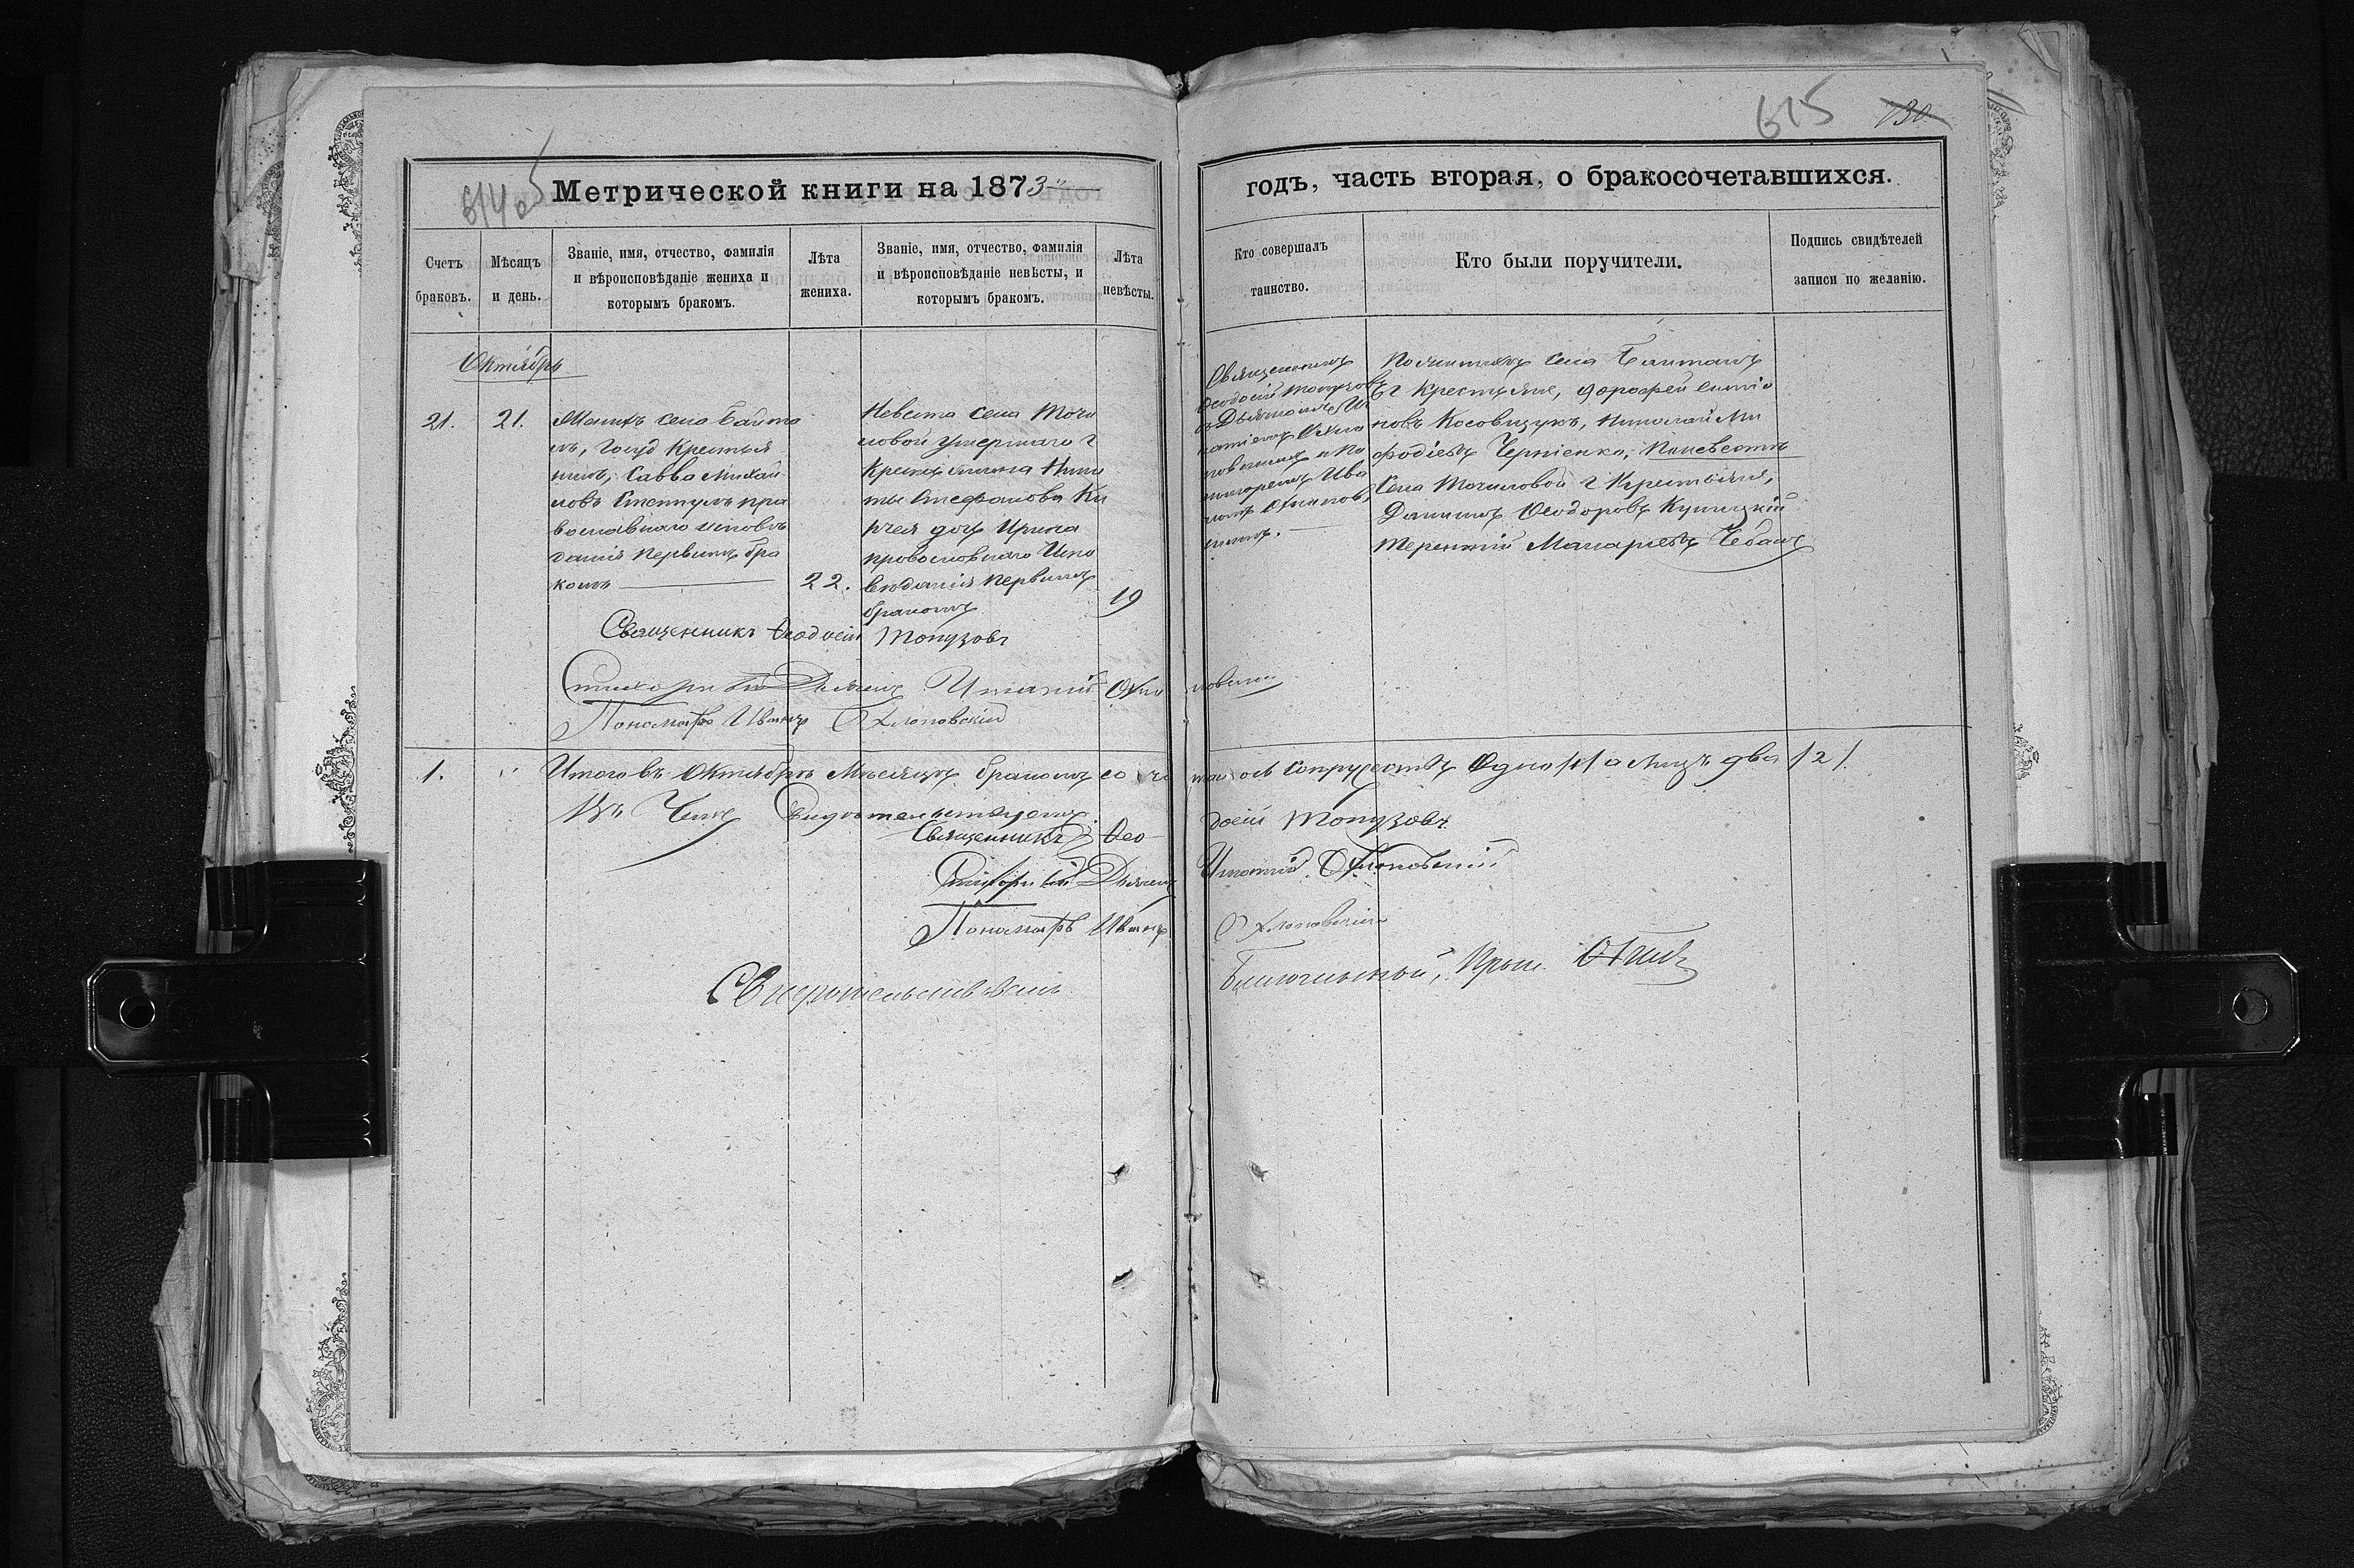 615 130
614 об
Метрической книги на 1873й годъ, часть вторая, о бракосочетавшихся.
Счетъ браковъ.
Мѣсяцъ и день.
Званіе, имя, отчество, фамилія
и вѣроисповѣданіе жениха и
которымъ бракомъ.
Лѣта
жениха.
Званіе, имя, отчество, фамилія
и вѣроисповѣданіе невѣсты, и
которымъ бракомъ.
Лѣта
невѣсты.
Кто совершалъ
таинство.
Кто были поручители.
Подпись свидѣтелей
записи по желанію.
Октябрь
21. 21.
Женихъ села Байта
лъ, Госуд Крестья
нинъ, Савва Михай
ловъ Стентулъ пра
вославнаго исповѣ
данія первымъ бра
комъ
22.
Невеста села Точи
ловой умершаго г
Крест Ники
ты Стефанова Ки
рчея дочь Ирина
провославнаго Испо
вѣданія первымъ
бракомъ
19
Священникъ
Феодосій Топузовъ
съ Дьячкомъ Иг
натіемъ Охло
повскимъ и По
номаремъ Ива
номъ Охлопов
скимъ.
По жениху села Байталъ
Г Крестьяне, Дорофей Симіо
новъ Косовщукъ, Николай Ми
фодіевъ Черніенко, По невѣстѣ
Села Точиловой г Крестьяне,
Даниилъ Феодоровъ Куницкій
Терентій Макаріевъ Чебанъ
Священникъ Феодосій Топузовъ
Стихарный Дьячекъ Игнатій Охло повскій
Пономарь Иванъ Охлоповскій
1. " Итого въ Октябрѣ Мѣсяцѣ бракомъ соче талось супружествъ Одно /1/ а лицъ два /2/.
Въ Чемъ свидѣтельствуемъ
Священникъ Фео досій Топузовъ.
Стихарный Дьячекъ Игнатій Охлоповскій
Пономарь Иванъ Охлоповскій
Свидѣтельствовалъ Благочинный,